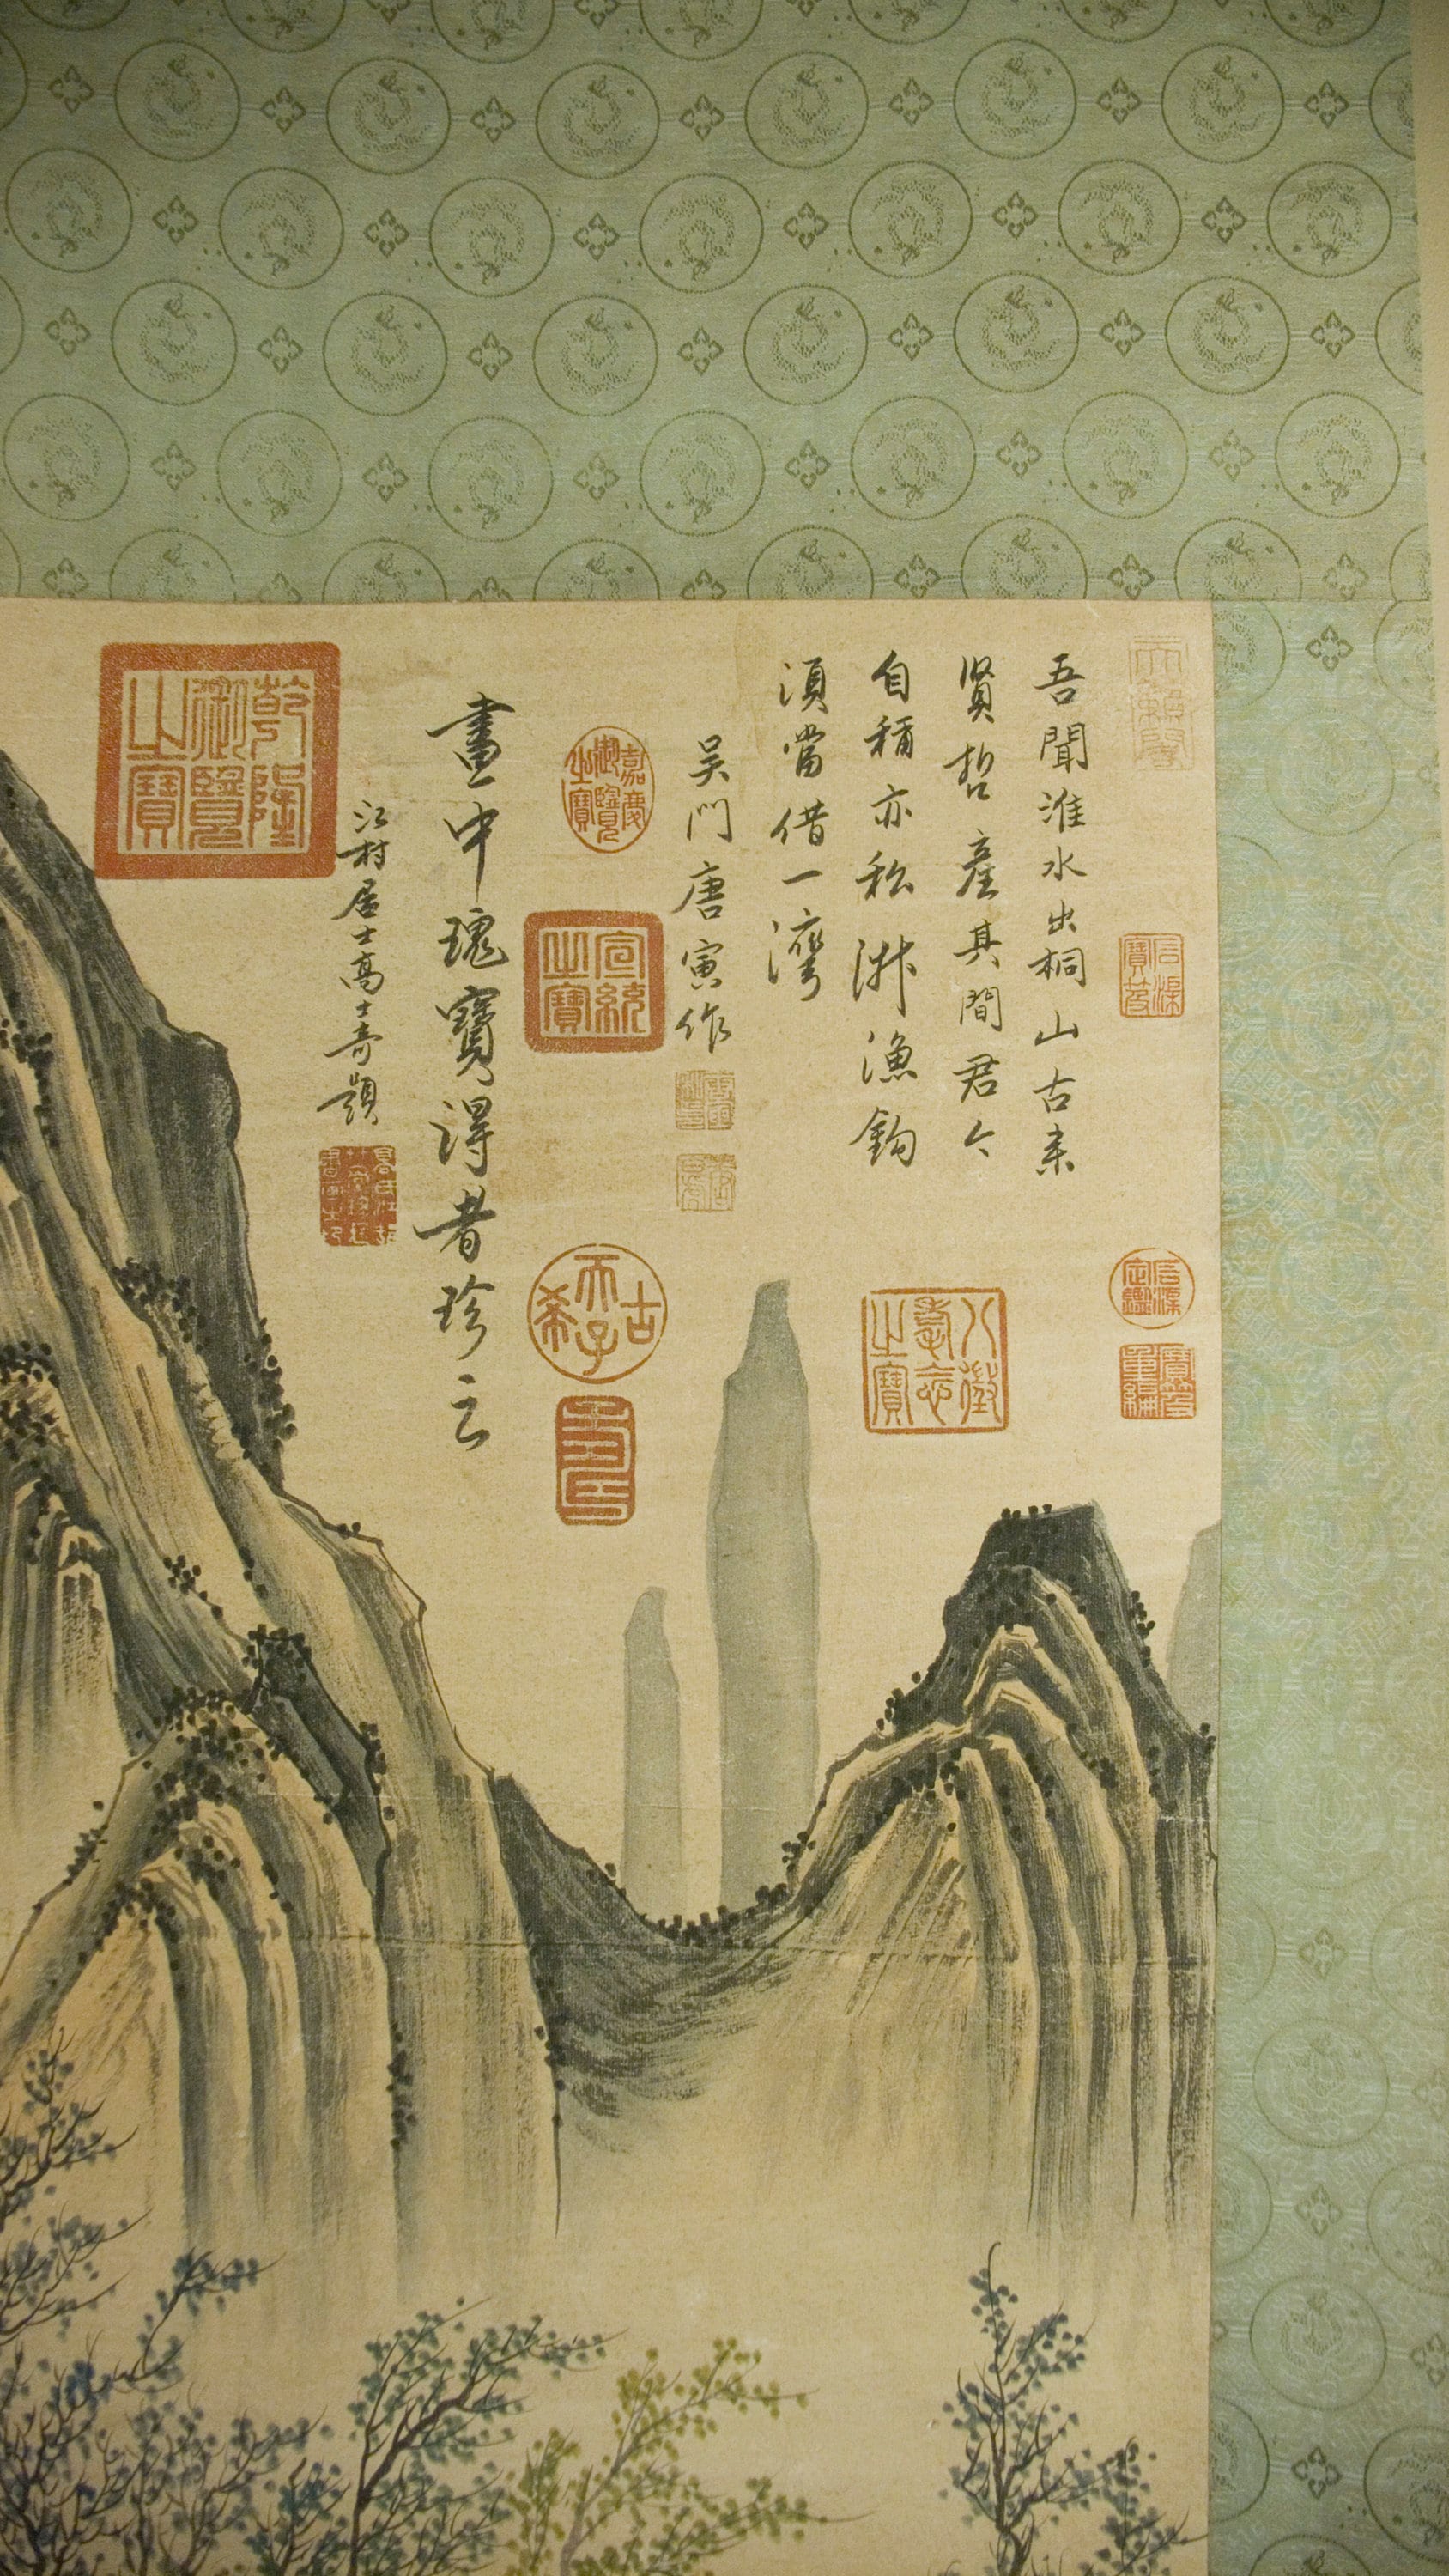 吾聞淮水出桐山古來
賢哲產其間君今
自稱亦私淑漁鈎
須當借一灣
吴門唐寅作
畫中瑰寶得者珍云
江村居士高士奇題
乾隆御覽之寶
嘉慶御覽之寶
宣統之寶
古希天子
壽
八徵耄念之寶
石渠寶笈
石渠定鑑
寶笈重編